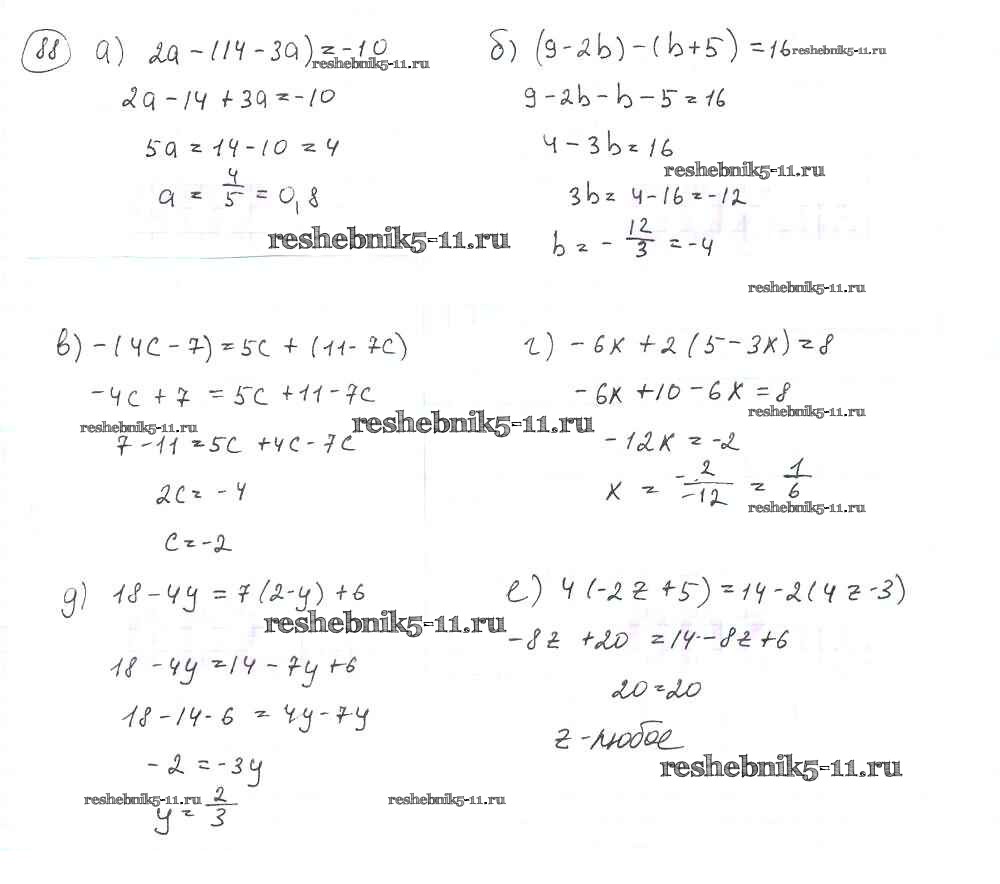 88 а) 2a - (14 - 3a) = -10 reshebnik5-11.ru
2a - 14 + 3a = -10
5a = 14 - 10 = 4
a = 4/5 = 0,8
reshebnik5-11.ru
б) (9 - 2b) - (b + 5) = 16 reshebnik5-11.ru
9 - 2b - b - 5 = 16
4 - 3b = 16
reshebnik5-11.ru
3b = 4 - 16 = -12
b = - 12/3 = -4
reshebnik5-11.ru
в) -(4c - 7) = 5c + (11 - 7c)
-4c + 7 = 5c + 11 - 7c
reshebnik5-11.ru
reshebnik5-11.ru
7 - 11 = 5c + 4c - 7c
2c = -4
c = -2
г) -6x + 2(5 - 3x) = 8
-6x + 10 - 6x = 8
reshebnik5-11.ru
-12x = -2
x = -2/-12 = 1/6
reshebnik5-11.ru
д) 18 - 4y = 7(2 - y) + 6
reshebnik5-11.ru
18 - 4y = 14 - 7y + 6
18 - 14 - 6 = 4y - 7y
-2 = -3y
reshebnik5-11.ru
y = 2/3
reshebnik5-11.ru
е) 4(-2z + 5) = 14 - 2(4z - 3)
-8z + 20 = 14 - 8z + 6
20 = 20
z - любое
reshebnik5-11.ru